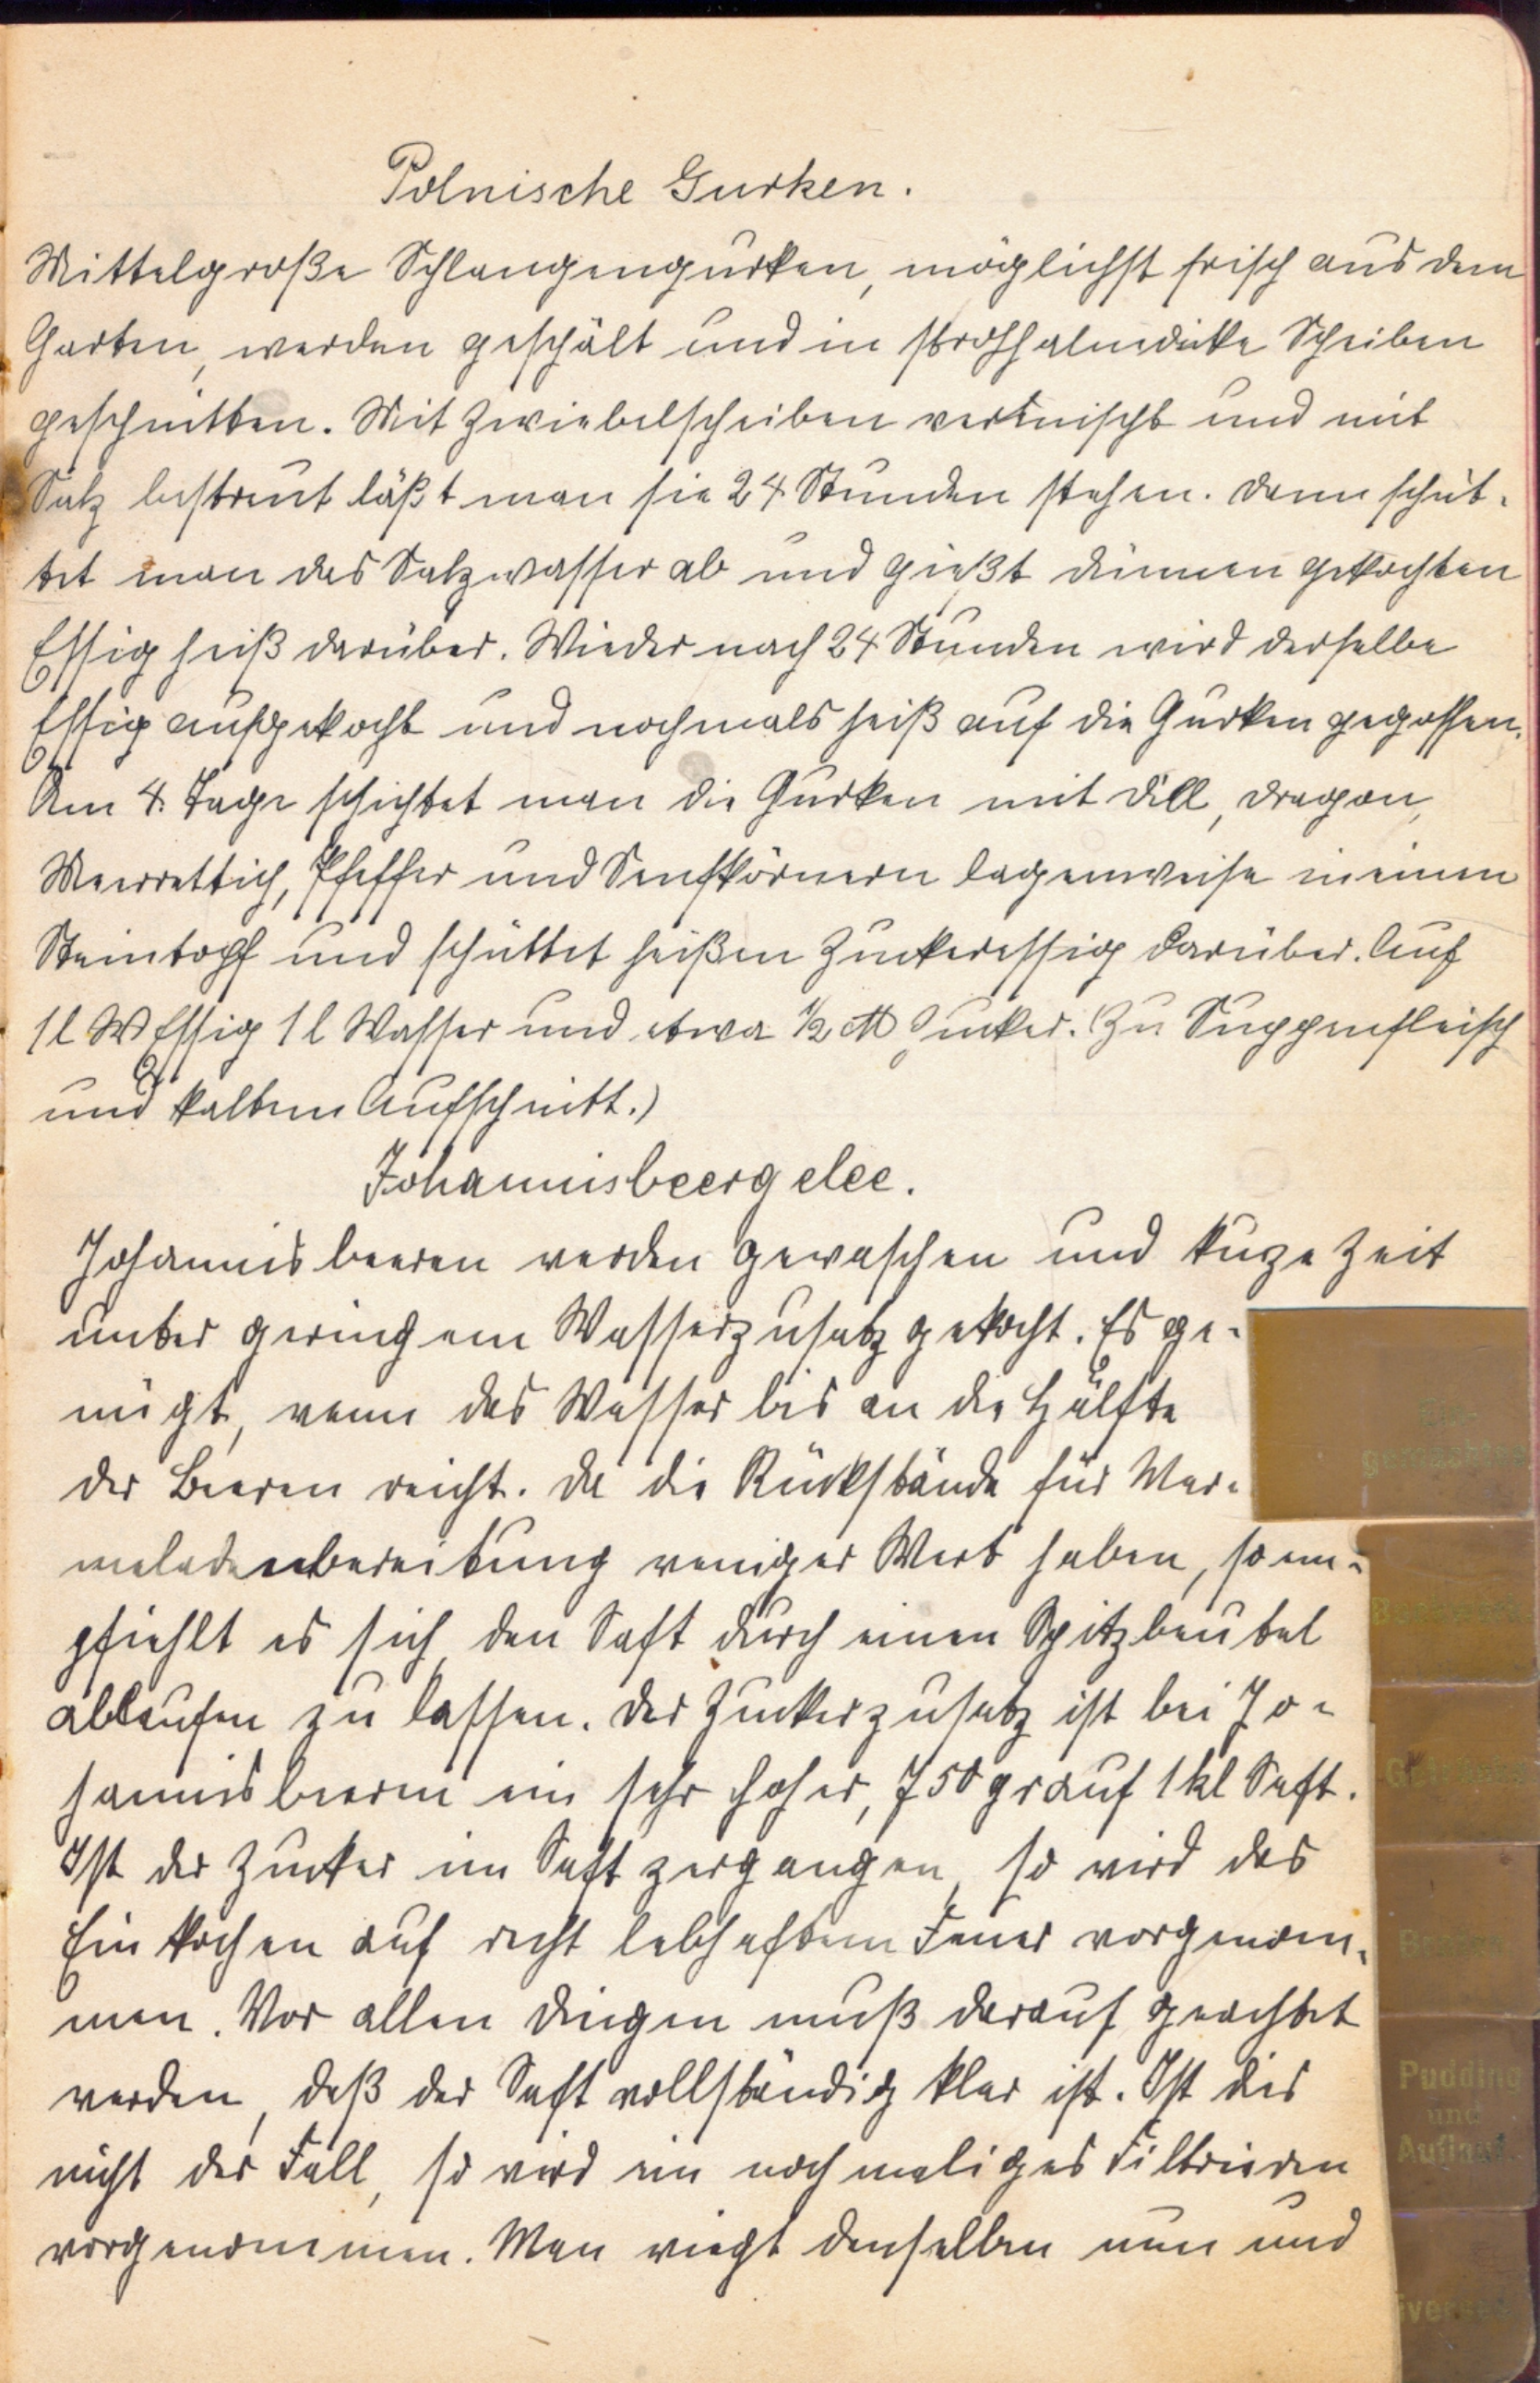 Polnische Gurken.
Mittelgroße Schlangengurken, möglichst frisch aus dem
Garten, werden geschält und in strohhalmdicke Scheiben
geschnitten. Mit Zwiebelscheiben vermischt und mit
Salz bestreut läßt man sie 24 Stunden stehen. Dann schüt-
tet man das Salzwasser ab und gießt dünnen gekochten
Essig heiß darüber. Wieder nach 24 Stunden wird derselbe
Essig aufgekocht und nochmals heiß auf die Gurken gegossen.
Am 4. Tage schichtet man die Gurken mit Dill, Dragon,
Meerrettich, Pfeffer und Senfkörnern lagenweise in einen
Steintopf und schüttet heißen Zuckeressig darüber. Auf
1 l W Essig 1 l Wasser und etwa ½ ℔ Zucker. (Zu Suppenfleisch
und kaltem Aufschnitt.)
Johannisbeergelee.
Johannisbeeren werden gewaschen und kuze Zeit
unter geringem Wasserzusatz gekocht. Es ge-
nügt, wenn das Wasser bis an die Hälfte
der Beeren reicht. Da die Rückstände für Mar-
meladenbereitung weniger Wert haben, so em-
pfiehlt es sich, den Saft durch einen Spitzbeutel
ablaufen zu lassen. Der Zuckerzusatz ist bei Jo-
hannisbeeren ein sehr hoher, 750 gr auf 1 kl Saft.
Ist der Zucker im Saft zergangen, so wird das
Einkochen auf recht lebhaftem Feuer vorgenom-
men. Vor allen Dingen muß darauf geachtet
werden, daß der Saft vollständig klar ist. Ist dies
nicht der Fall, so wird ein nochmaliges Filtrieren
vorgenommen. Man wiegt denselben nun und
Pudding
und
Auflauf